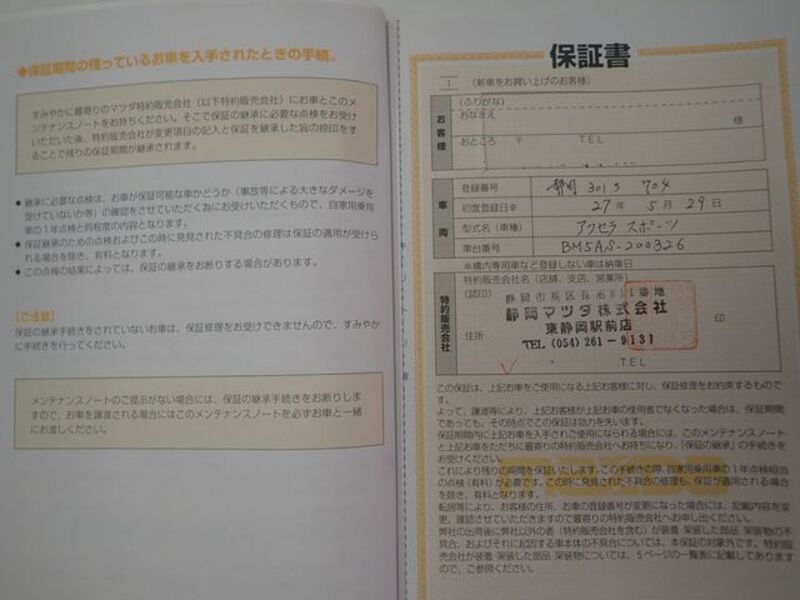 ◆保証期間の残っているお車を入手されたときの手続。
すみやかに最寄りのマツダ特約販売会社（以下特約販売会社）にお車とこのメ
ンテナンスノートをお持ちください。そこで保証の継承に必要な点検をお受け
いただいた後、特約販売会社が変更項目の記入と保証を継承した旨の捺印をす
ることで残りの保証期間が継承されます。
● 継承に必要な点検は、お車が保証可能な車かどうか（事故等による大きなダメージを
受けていないか等）の確認をさせていただく為にお受けいただくもので、自家用乗用
車の1年点検と同程度の内容となります。
● 保証継承のための点検およびこの時に発見された不具合の修理は保証の適用が受けら
れる場合を除き、有料となります。
● この点検の結果によっては、保証の継承をお断りする場合があります。
【ご注意】
保証の継承手続きをされていないお車は、保証修理をお受けできませんので、すみやか
に手続きを行ってください。
メンテナンスノートのご提示がない場合には、保証の継承手続きをお断りしま
すので、お車を譲渡される場合にはこのメンテナンスノートを必ずお車と一緒
にお渡しください。
保証書
1 （新車をお買い上げのお客様）
お客様
(ふりがな)
おなまえ 様
おところ 〒 TEL
車両
登録番号 静岡 301 す 704
初度登録日※ 27 年 5 月 29 日
型式名（車種） アクセラ スポーツ
車台番号 BM5AS-200326
※構内専用車など登録しない車は納車日
特約販売会社
特約販売会社名（店舗、支店、営業所）
（認印） 印
静岡マツダ株式会社
東静岡駅前店
住所
TEL (054) 261-9131
TEL
この保証は、上記お車をご使用になる上記お客様に対し、保証修理をお約束するもので
す。
よって、譲渡等により、上記お客様が上記お車の使用者でなくなった場合は、保証期間
であっても、その時点でこの保証は効力を失います。
保証期間内に上記お車を入手されご使用になられる場合には、このメンテナンスノート
と上記お車をただちに最寄りの特約販売会社へお持ちになり、「保証の継承」の手続きを
お受けください。
これにより残りの期間を保証いたします。この手続きの際、自家用乗用車の1年点検相当
の点検（有料）が必要です。この時に発見された不具合の修理も、保証が適用される場合
を除き、有料となります。
転居等により、お客様の住所、お車の登録番号が変更になった場合には、記載内容を変
更、確認させていただきますので最寄りの特約販売会社へお申し出ください。
弊社の出荷後に弊社以外の者（特約販売会社を含む）が装着・架装した部品・架装物の不
具合、およびそれに起因する車本体の不具合については、本保証の対象外です。特約販
売会社が装着・架装した部品・架装物については、5ページの一覧表に記載してあります
ので、ご参照ください。